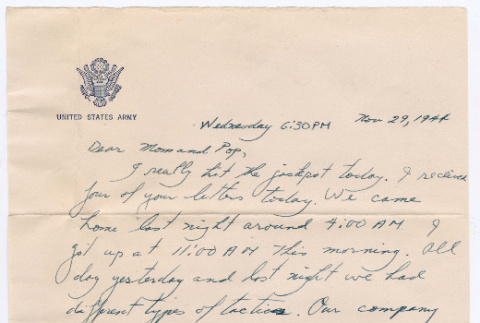 UNITED STATES ARMY
Wednesday 6:30 PM Nov 29, 1944
Dear Mom and Pop,
I really hit the jackpot today. I received
four of your letters today. We came
home last night around 4:00 AM I
got up at 11:00 AM this morning. All
day yesterday and last night we had
different types of tactics. Our company